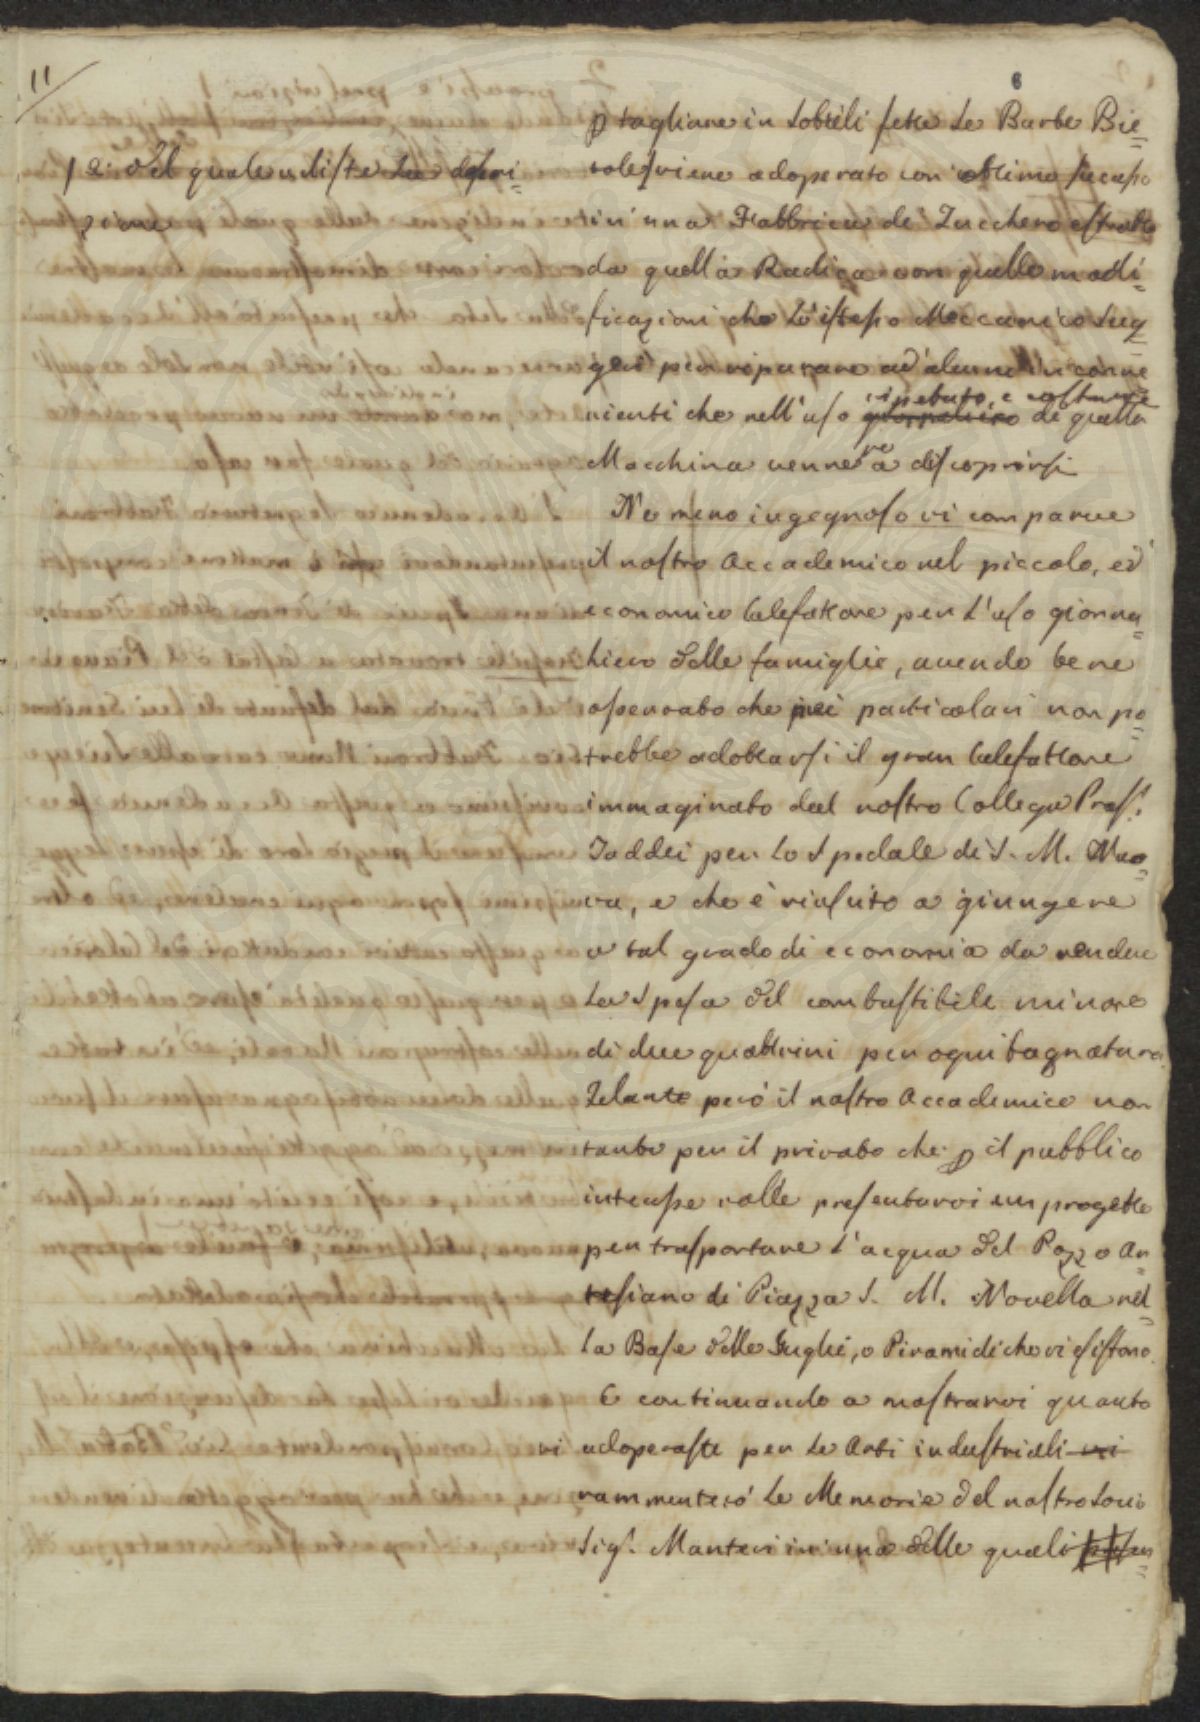 11
6
p tagliare in sottili fette le Barbe Bie=
/ e del quale udiste la descri=
zione
tole/ viene adoperato con ottimo successo
in una Fabbrica di Zucchero estratto
da quella Radica con quelle modi=
ficazioni che lo istesso Meccanico sug=
gerì per riparare ad alcuni inconve
ripetuto, e costante
nienti che nell'uso giornaliero di quella
Macchina venne a discoprirsi
Ne meno ingegnoso vi comparve
il nostro Accademico nel piccolo, ed
economico Calefattore per l'uso giorna=
liero delle famiglie, avendo bene
osservato che pei particolari non po=
trebbe adottarsi il gran Calefattore
immaginato dal nostro Collega Prof.
Taddei per lo Spedale di S. M. Nuo=
va, e che è riuscito a giungere
a tal grado di economia da rendere
la spesa del combustibile minore
di due quattrini per ogni bagnatura
Zelante però il nostro Accademico non
tanto per il privato che p il pubblico
intraprese volle presentarvi un progetto
per trasportare l'acqua del Pozzo Ar=
tesiano di Piazza S. M. Novella nel=
la Base delle Guglie, o Piramidi che vi esistono.
E continuando a mostrarvi quanto
vi adoperaste per le Arti industriali vi
rammenterò le Memorie del nostro Socio
Sig. Manteri in una delle quali